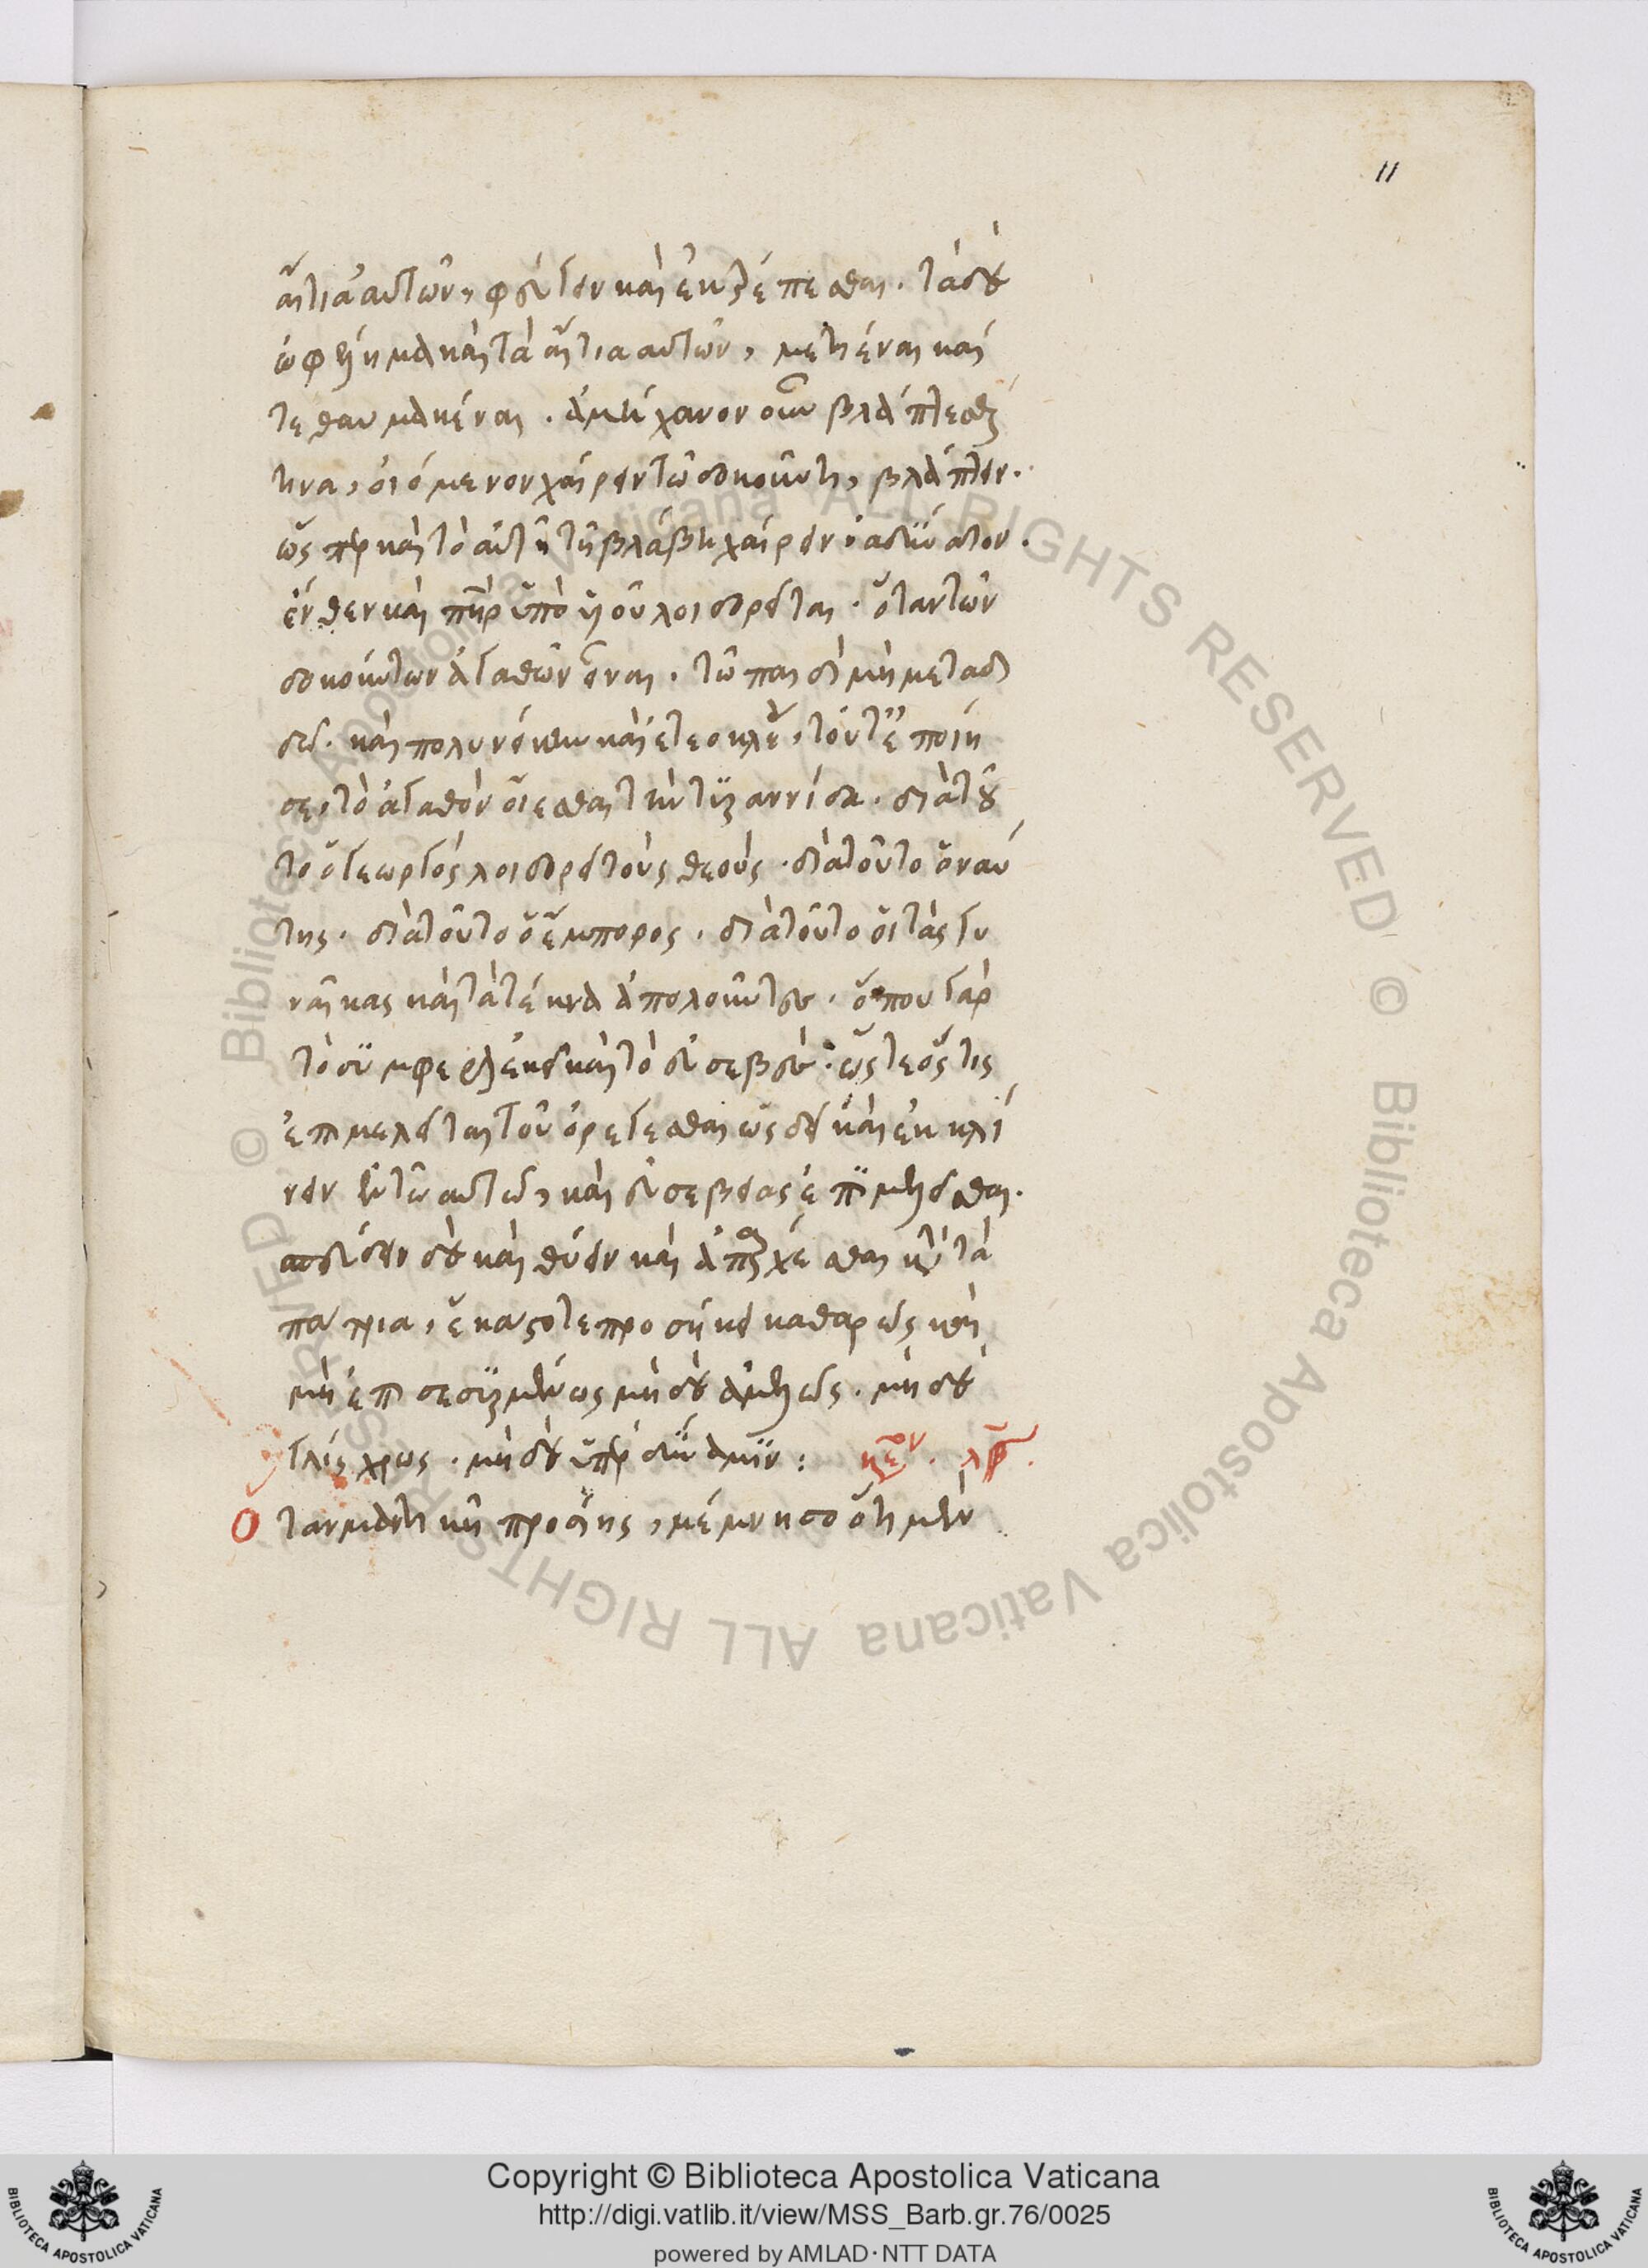 11
αἴτια αὐτῶν, φεύγειν καὶ ἐκτρέπεσθαι. τὰ δὲ
ὠφέλημα καὶ τὰ αἴτια αὐτῶν, μετιέναι καὶ
τεθαυμακέναι. ἀμήχανον οὖν βλάπτεσθαί
τινα, οἰόμενον χαίρειν τῷ δοκοῦντι, βλάπτειν.
ὥσπερ καὶ τὸ αὐτῇ τῇ βλάβῃ χαίρειν ἀδύνατον.
ἔνθεν καὶ πατὴρ ὑπὸ υἱοῦ λοιδορεῖται. ὅταν τῶν
δοκούντων ἀγαθῶν εἶναι. τῷ παιδὶ μὴ μεταδι
δῷ. καὶ πολυνείκην καὶ ἐτεοκλέα, τοῦτ' ἐποίη
σε, τὸ ἀγαθὸν οἴεσθαι τὴν τυραννίδα. διὰ τοῦ
το ὁ γεωργὸς λοιδορεῖ τοὺς θεούς. διὰ τοῦτο ὁ ναύ
της. διὰ τοῦτο ὁ ἔμπορος. διὰ τοῦτο οἱ τὰς γυ
ναῖκας καὶ τὰ τέκνα ἀπολοῦντες. ὅπου γὰρ
τὸ συμφέρον ἐκεῖ καὶ τὸ εὐσεβές. ὥστε ὅστις
ἐπιμελεῖται τοῦ ὀρέγεσθαι ὡς δεῖ καὶ ἐκκλί
νειν ἐν τῷ αὐτῷ, καὶ εὐσεβείας ἐπιμελεῖσθαι.
σπένδειν δὲ καὶ θύειν καὶ ἀπάρχεσθαι κατὰ τὰ
πάτρια, ἑκάστοτε προσήκει καθαρῶς καὶ
μὴ ἐπισεσυρμένως μὴ δὲ ἀμελῶς. μὴ δὲ
γλίσχρως. μὴ δὲ ὑπὲρ δύναμιν: κεφάλαιον. λβ.
Ὅταν μαντικῇ προσίῃς, μέμνησο ὅτι μὲν
Copyright © Biblioteca Apostolica Vaticana
http://digi.vatlib.it/view/MSS_Barb.gr.76/0025
powered by AMLAD · NTT DATA